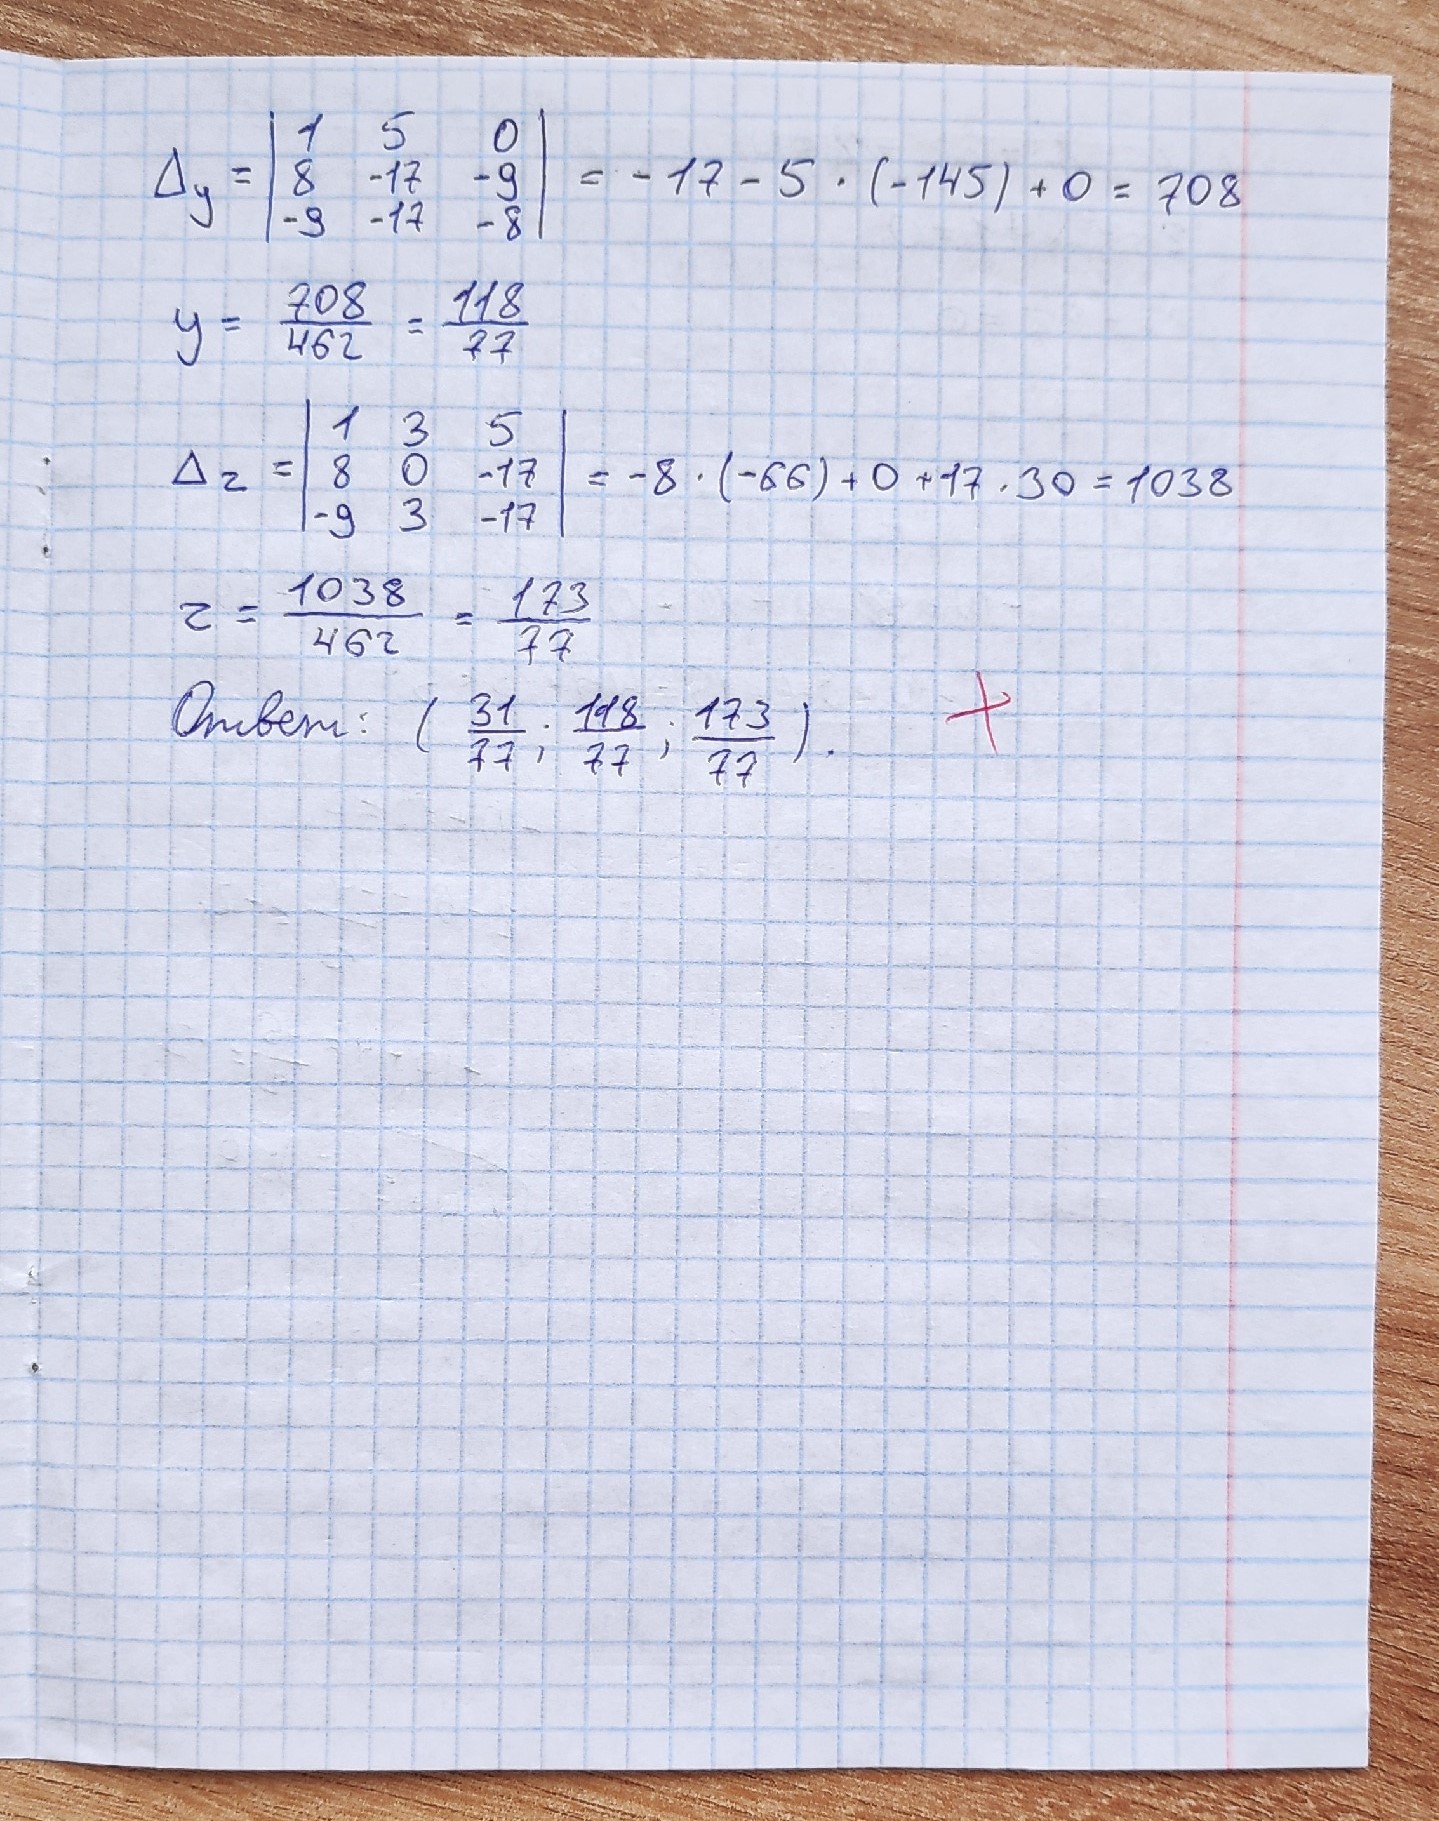 Δy = | 1 5 0 |
| 8 -17 -9 | = -17 - 5 · (-145) + 0 = 708
| -9 -17 -8 |
y = 708/462 = 118/77
Δz = | 1 3 5 |
| 8 0 -17 | = -8 · (-66) + 0 + 17 · 30 = 1038
| -9 3 -17 |
z = 1038/462 = 173/77
Ответ: ( 31/77 ; 118/77 ; 173/77 ). +